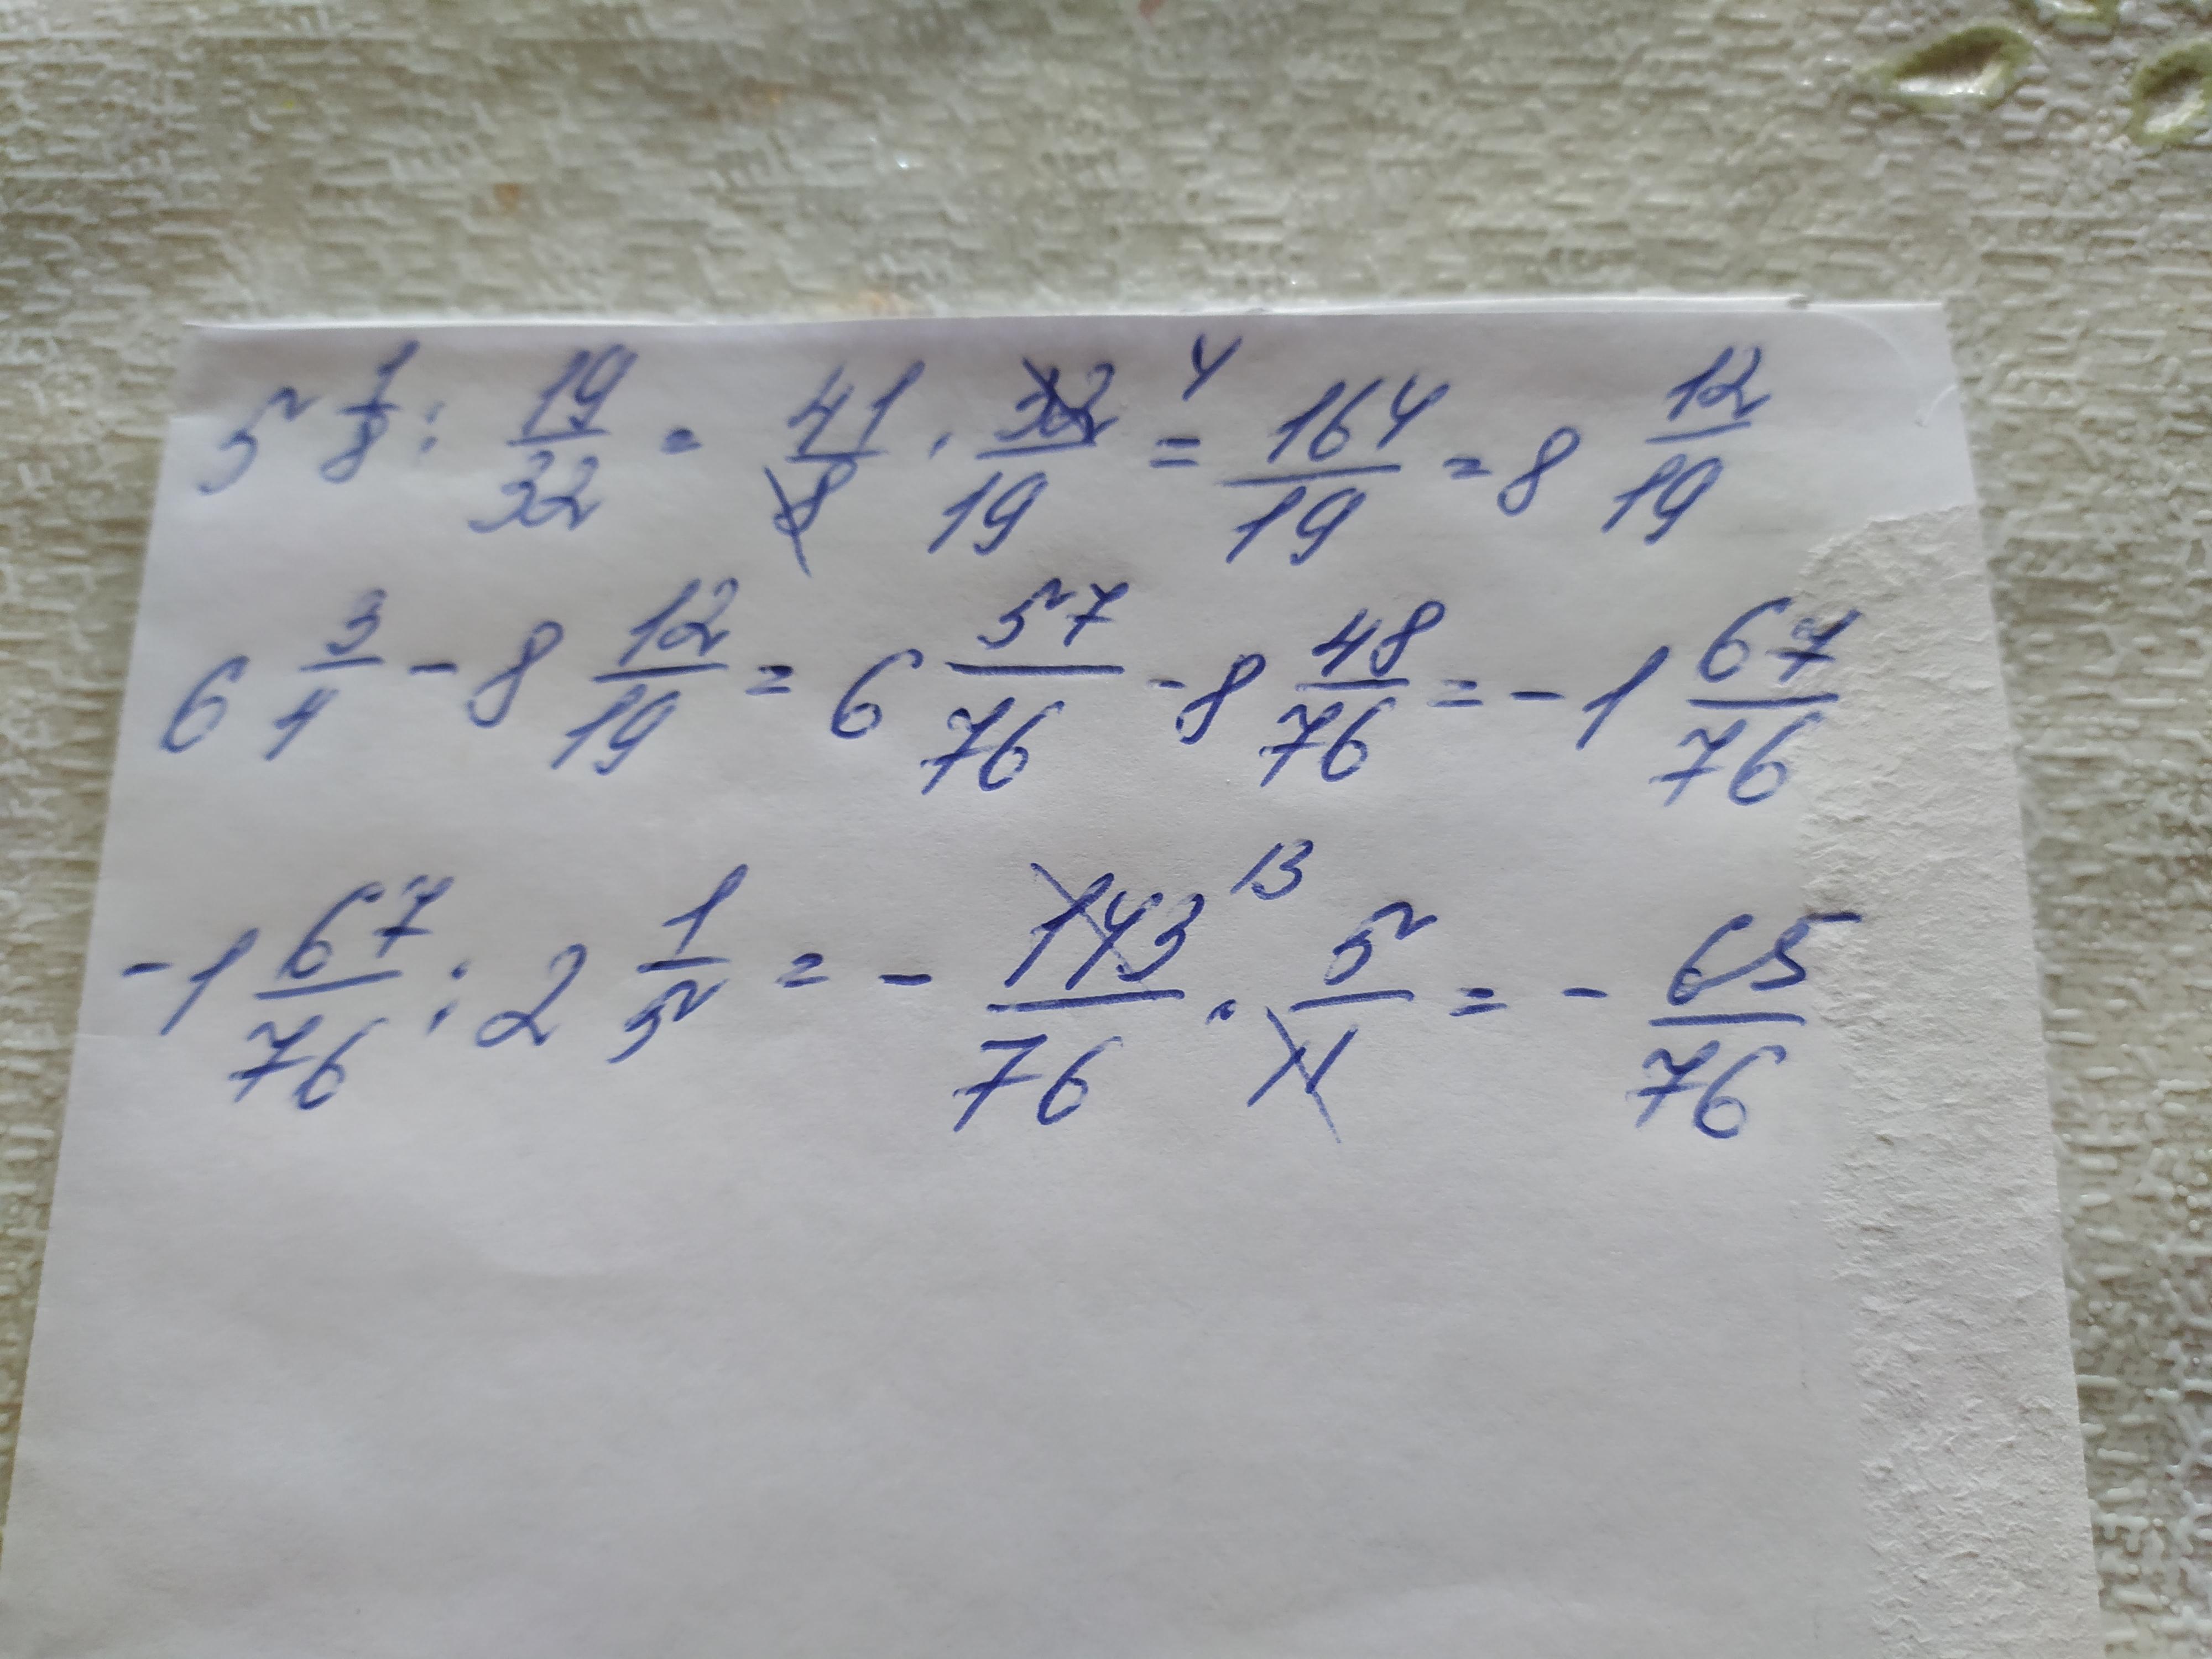 5 1/8 : 19/32 = 41/8 · 32/19 4 = 164/19 = 8 12/19
6 3/4 - 8 12/19 = 6 57/76 - 8 48/76 = - 1 67/76
- 1 67/76 : 2 1/5 = - 143/76 13 · 5/11 = - 65/76